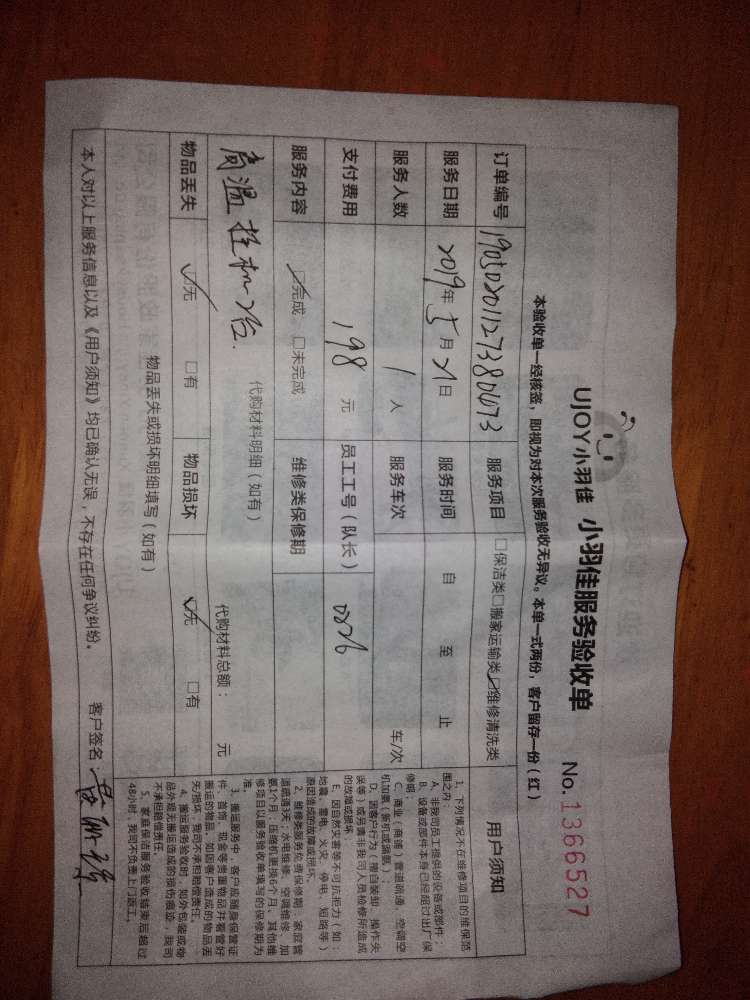 UJOY小羽佳 小羽佳服务验收单 No.1366527
本验收单一经核签，即视为对本次服务验收无异议。本单一式两份，客户留存一份（红）
订单编号 服务项目 □保洁类□搬家运输类☑维修清洗类 用户须知
服务日期 2019年5月21日 服务时间 自 至 止
服务人数 1人 服务车次 车/次
支付费用 198元 员工工号（队长） 0826
服务内容 ☑完成 □未完成 维修类保修期
高温挂机2台.
代购材料明细（如有） 代购材料总额： 元
物品丢失 ☑无 □有 物品损坏 ☑无 □有
物品丢失或损坏明细填写（如有）
本人对以上服务信息以及《用户须知》均已确认无误，不存在任何争议纠纷。 客户签名：
1、下列情况不在维修项目的维保范
围之内：
A、非我司员工提供的设备或部件；
B、设备或部件本身已经超过出厂保
修期；
C、商业（商铺）管道疏通、空调空
机加氟（新机或漏氟）；
D、因客户行为（擅自装卸、操作失
误等）或另请非我司人员检修所造成
的故障或损坏
E、因自然灾害等不可抗拒力（如：
地震、雷电、火灾、停电、短路等）
原因造成的故障或损坏。
2、维修类服务免费保修期：家庭管
道疏通3天，水电维修、空调维修、加
氨1个月，压缩机更换6个月，其他维
修项目以服务验收单填写的保修期为
准。
3、搬运服务中，客户应随身保管证
件、首饰、现金等贵重物品并看管好
搬运的物品，如因客户造成的物品丢
失/损坏，我司不承担赔偿责任。
4、搬运服务验收时，如外包装或物
品外观无搬运造成的损伤痕迹，我司
不承担赔偿责任。
5、家庭保洁服务验收结束后超过
48小时，我司不负责上门返工。